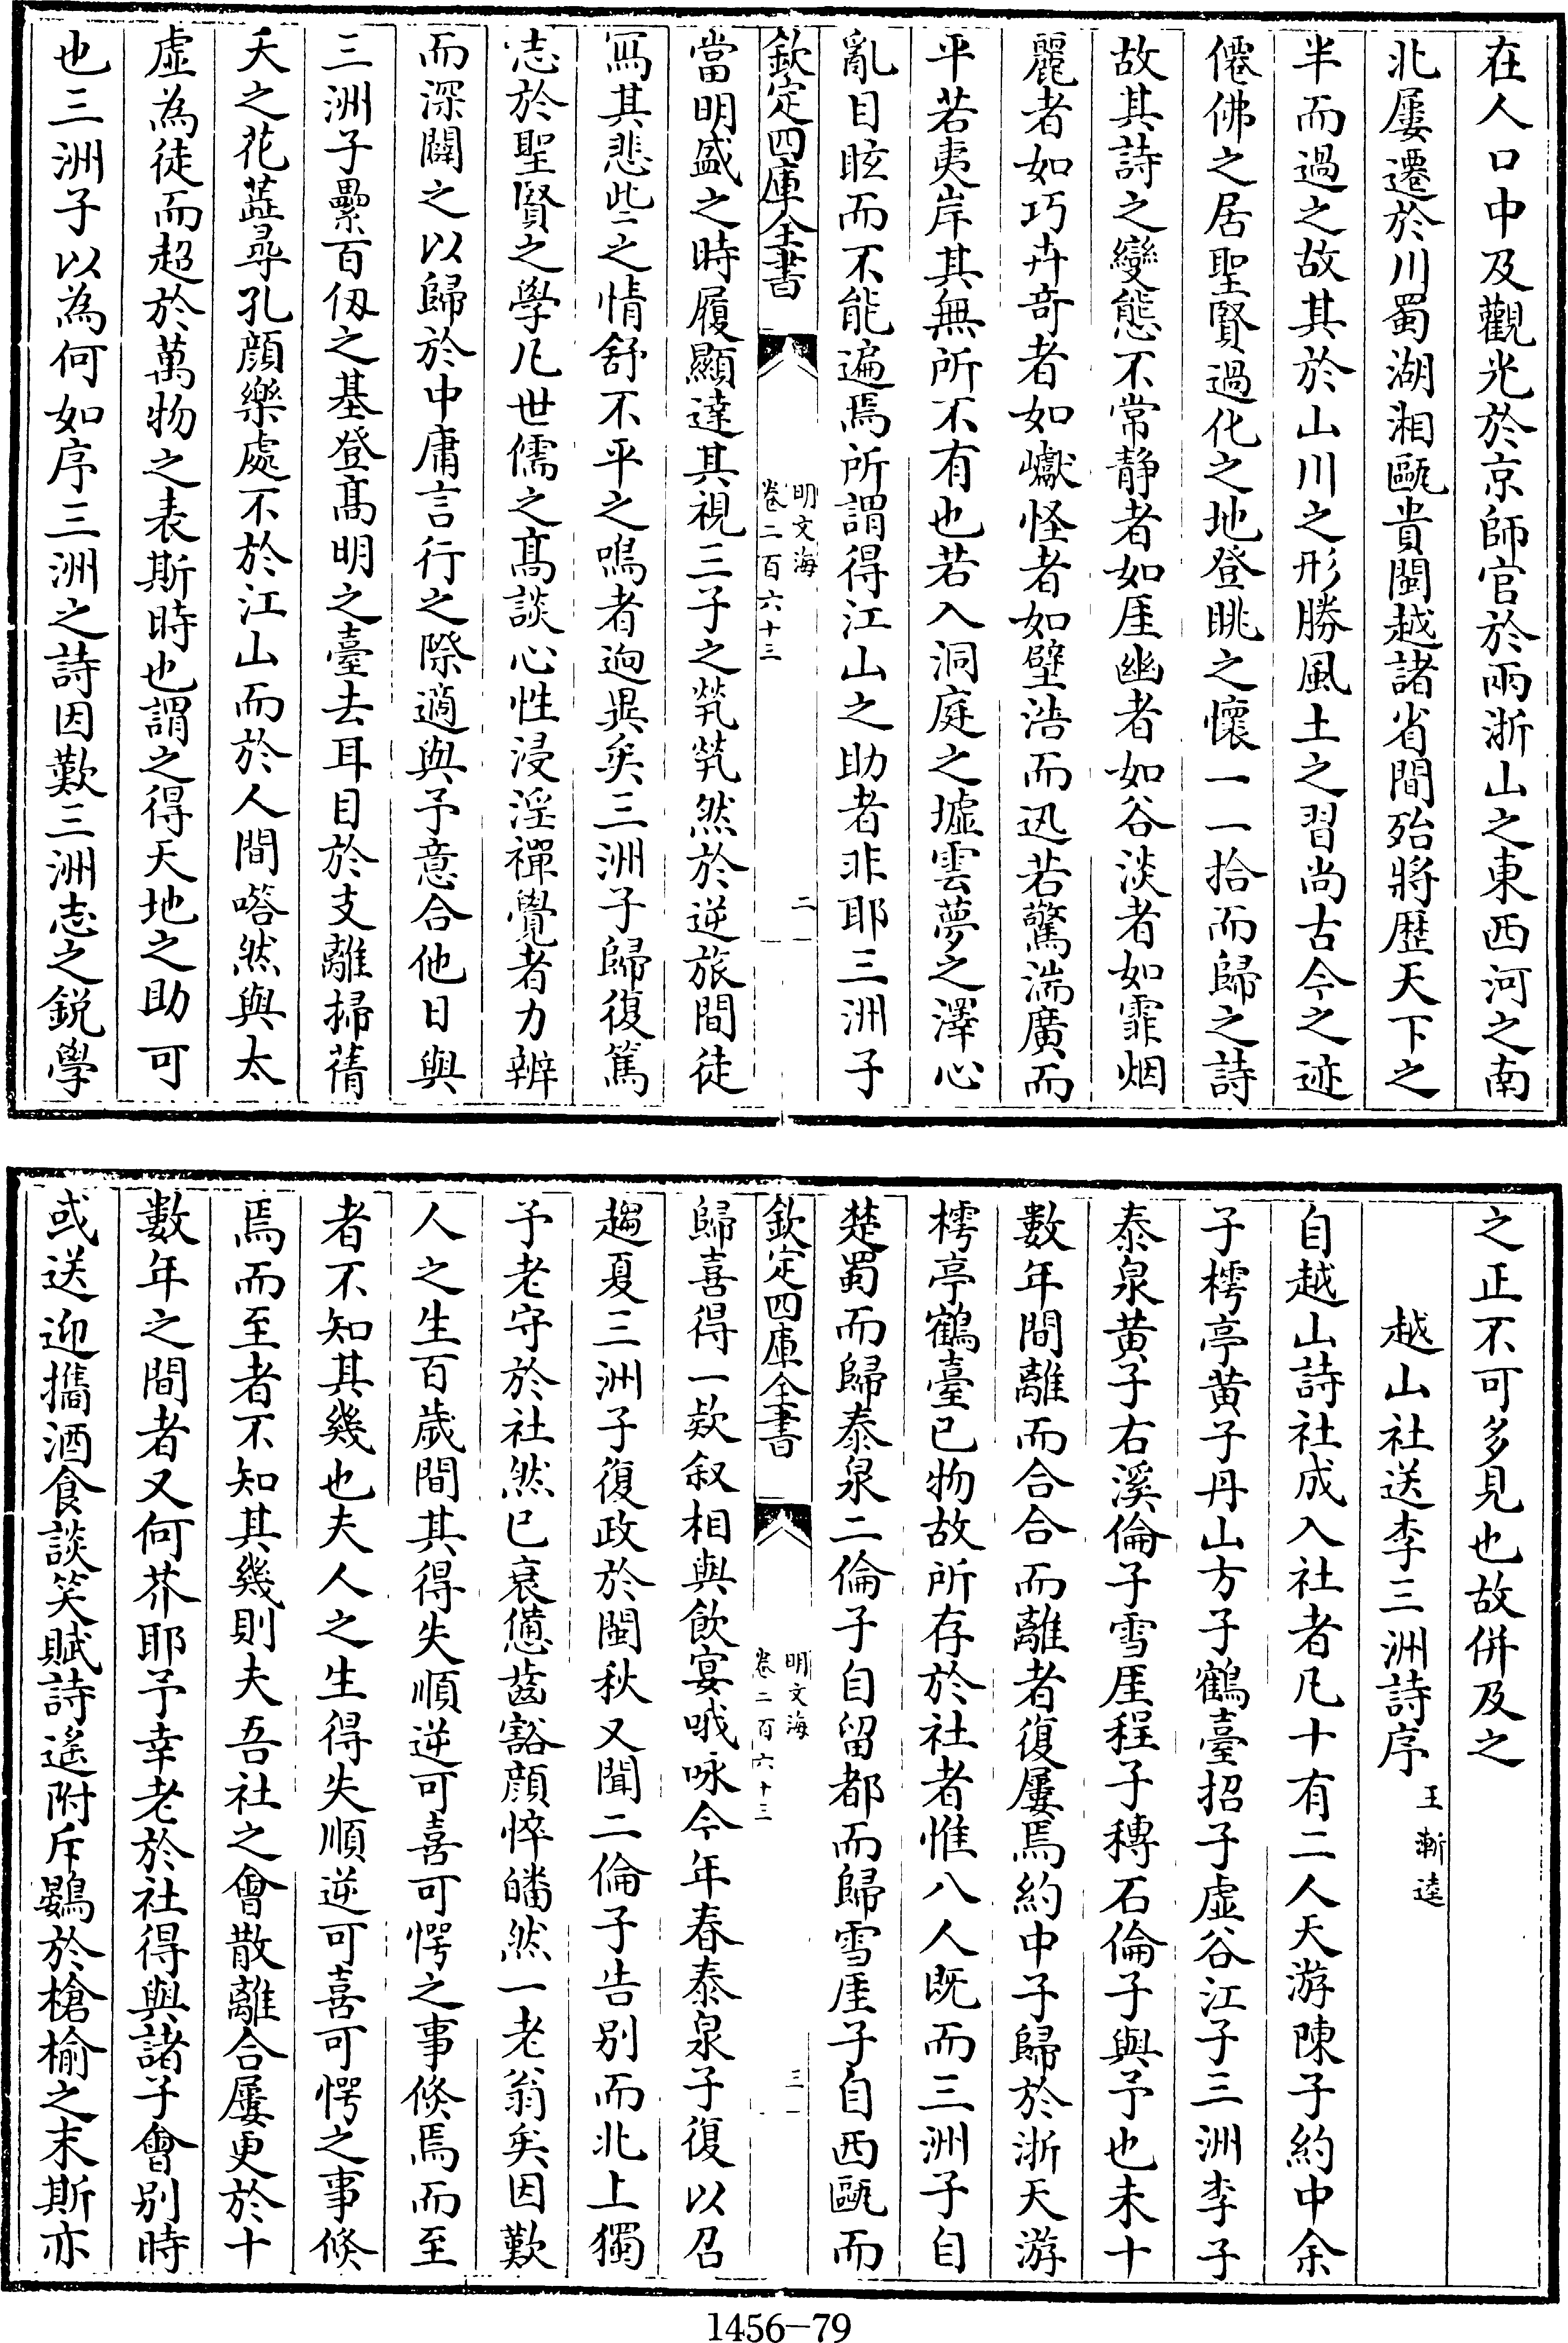 在人口中及觀光於京師官於兩浙山之東西河之南
北屢遷於川蜀湖湘甌貴閩越諸省間殆將歴天下之
半而過之故其於山川之形勝風土之習尚古今之迹
僊佛之居聖賢過化之地登眺之懷一一拾而歸之詩
故其詩之變態不常静者如厓幽者如谷淡者如霏烟
麗者如巧卉奇者如巘怪者如壁浩而迅若驚湍廣而
平若夷岸其無所不有也若入洞庭之墟雲夢之澤心
亂目眩而不能遍焉所謂得江山之助者非耶三洲子
欽定四庫全書
明文海
卷二百六十三
二
當明盛之時履顯達其視三子之煢煢然於逆旅間徒
冩其悲些之情舒不平之鳴者逈異矣三洲子歸復篤
志於聖賢之學凡世儒之髙談心性浸淫禪覺者力辨
而深闢之以歸於中庸言行之際適與予意合他日與
三洲子纍百仭之基登髙明之臺去耳目於支離掃蒨
夭之花蘂尋孔顔樂處不於江山而於人間嗒然與太
虚為徒而超於萬物之表斯時也謂之得天地之助可
也三洲子以為何如序三洲之詩因歎三洲志之鋭學
之正不可多見也故併及之
越山社送李三洲詩序
王漸逵
自越山詩社成入社者凡十有二人天游陳子約中余
子樗亭黄子丹山方子鶴臺招子虚谷江子三洲李子
泰泉黄子右溪倫子雪厓程子穗石倫子與予也未十
數年間離而合合而離者復屢焉約中子歸於浙天游
樗亭鶴臺已物故所存於社者惟八人既而三洲子自
楚蜀而歸泰泉二倫子自留都而歸雪厓子自西甌而
欽定四庫全書
明文海
卷二百六十三
三
歸喜得一欵叙相與飲宴哦咏今年春泰泉子復以召
趨夏三洲子復政於閩秋又聞二倫子告别而北上獨
予老守於社然已衰憊齒豁顔悴皤然一老翁矣因歎
人之生百歲間其得失順逆可喜可愕之事倐焉而至
者不知其幾也夫人之生得失順逆可喜可愕之事倐
焉而至者不知其幾則夫吾社之會散離合屢更於十
數年之間者又何芥耶予幸老於社得與諸子會别時
或送迎攜酒食談笑賦詩遙附斥鷃於槍榆之末斯亦
1456-79